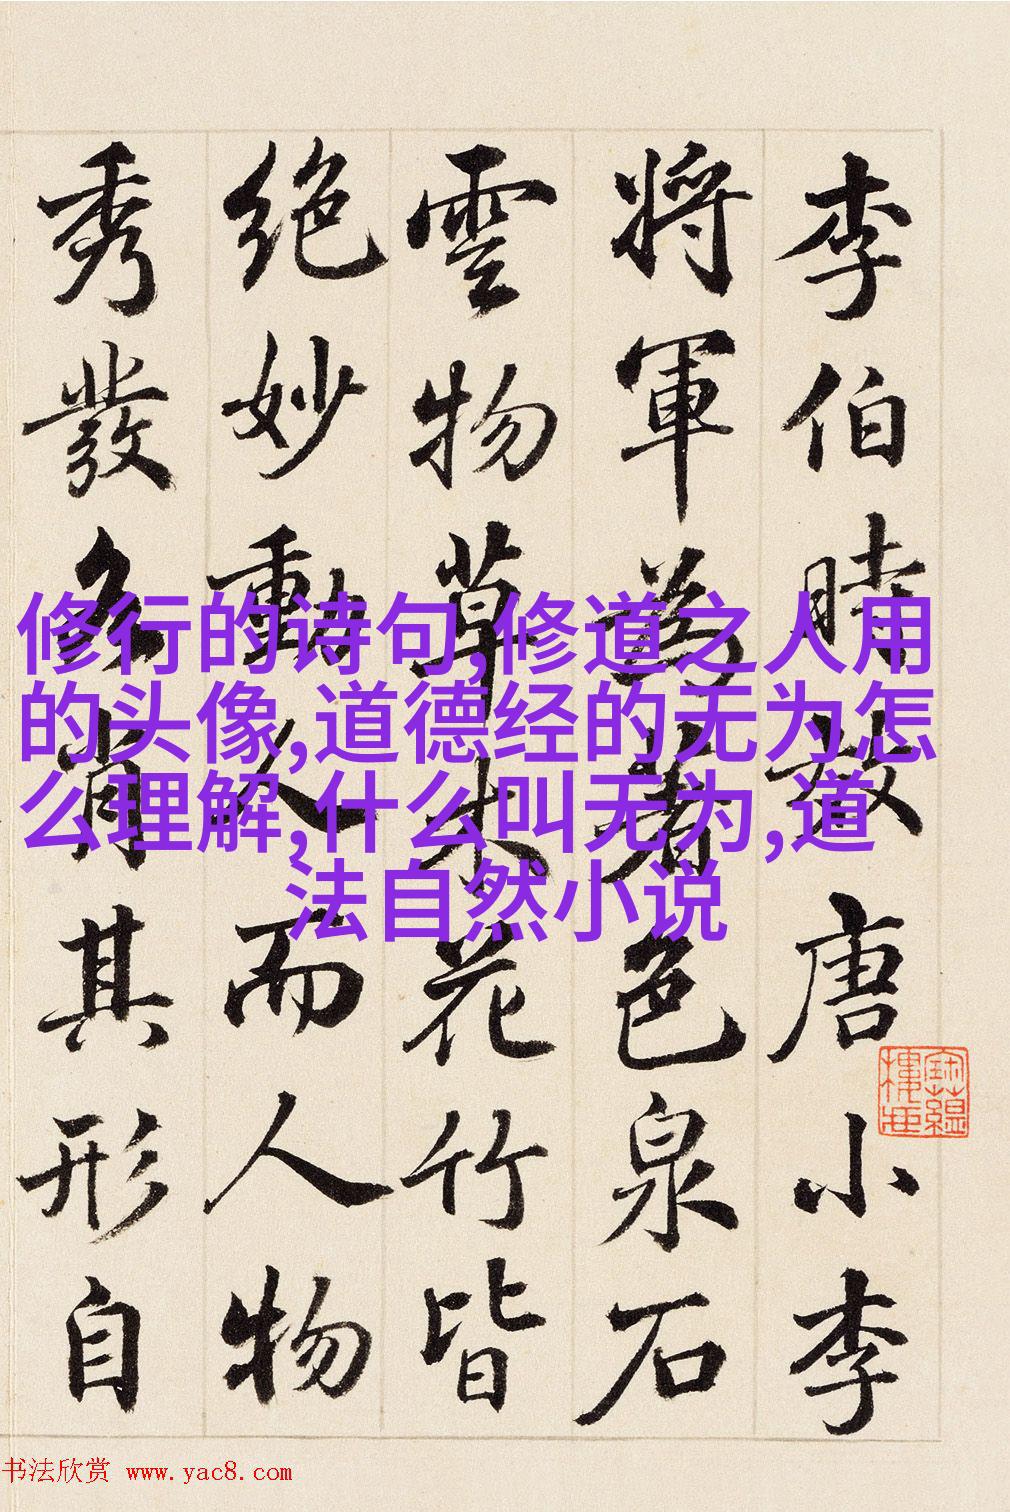 李伯時效唐小李
将軍為著色泉石
雲物草木花竹皆
絶妙動人而人物
秀發各肖其形自
修行的诗句,修道之人用
的头像,道德经的无为怎
么理解,什么叫无为,道
法自然小说
书法欣赏 www.yac8.com